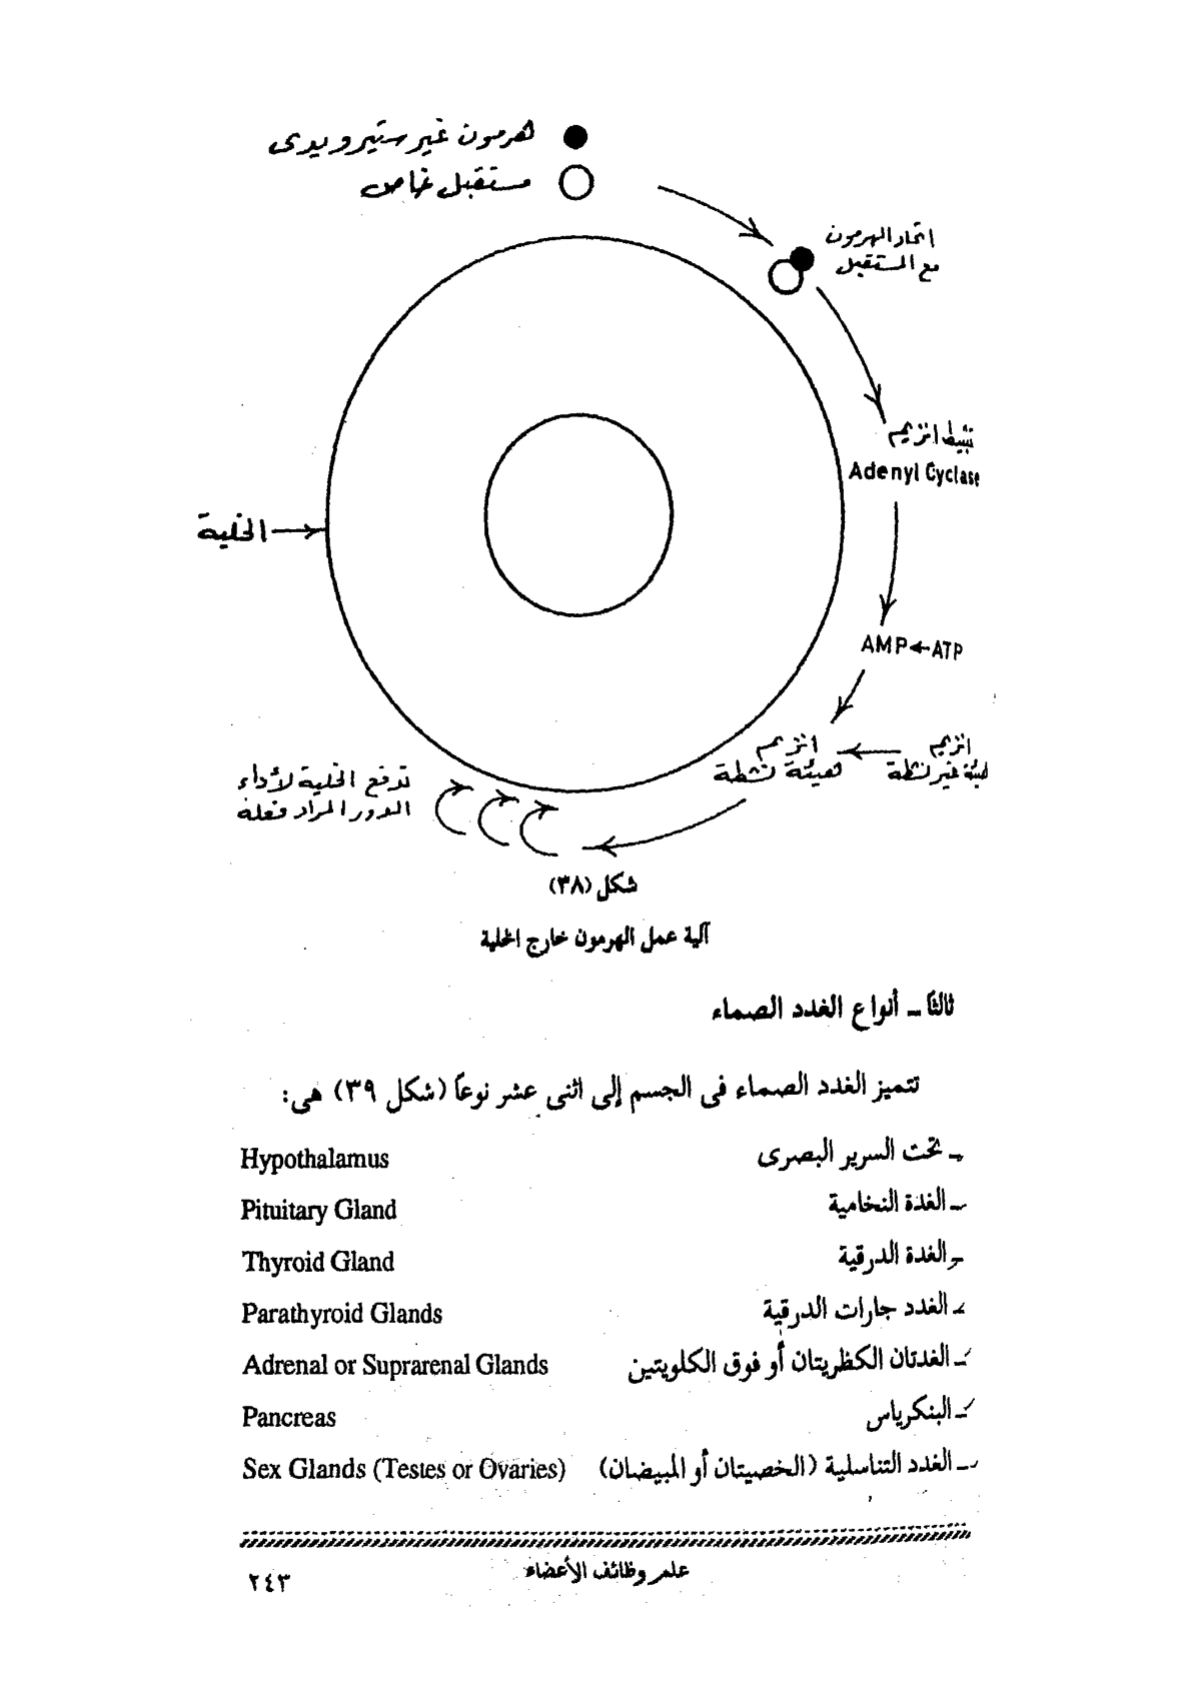 هرمون غير ستيرويدى
مستقبل خاص
اتحاد الهرمون
مع المستقبل
تثبيط انزيم
Adenyl Cyclase
الخلية
AMP ← ATP
انزيم
بهيئة غير نشطة
انزيم
بهيئة نشطة
تدفع الخلية لأداء
الدور المراد فعله
شكل (٣٨)
آلية عمل الهرمون خارج الخلية
ثالثاً ــ أنواع الغدد الصماء
تتميز الغدد الصماء فى الجسم إلى اثنى عشر نوعاً (شكل ٣٩) هى:
ــ تحت السرير البصرى Hypothalamus
ــ الغدة النخامية Pituitary Gland
ــ الغدة الدرقية Thyroid Gland
ــ الغدد جارات الدرقية Parathyroid Glands
ــ الغدتان الكظريتان أو فوق الكلويتين Adrenal or Suprarenal Glands
ــ البنكرياس Pancreas
ــ الغدد التناسلية (الخصيتان أو المبيضان) Sex Glands (Testes or Ovaries)
علم وظائف الأعضاء
٢٤٣